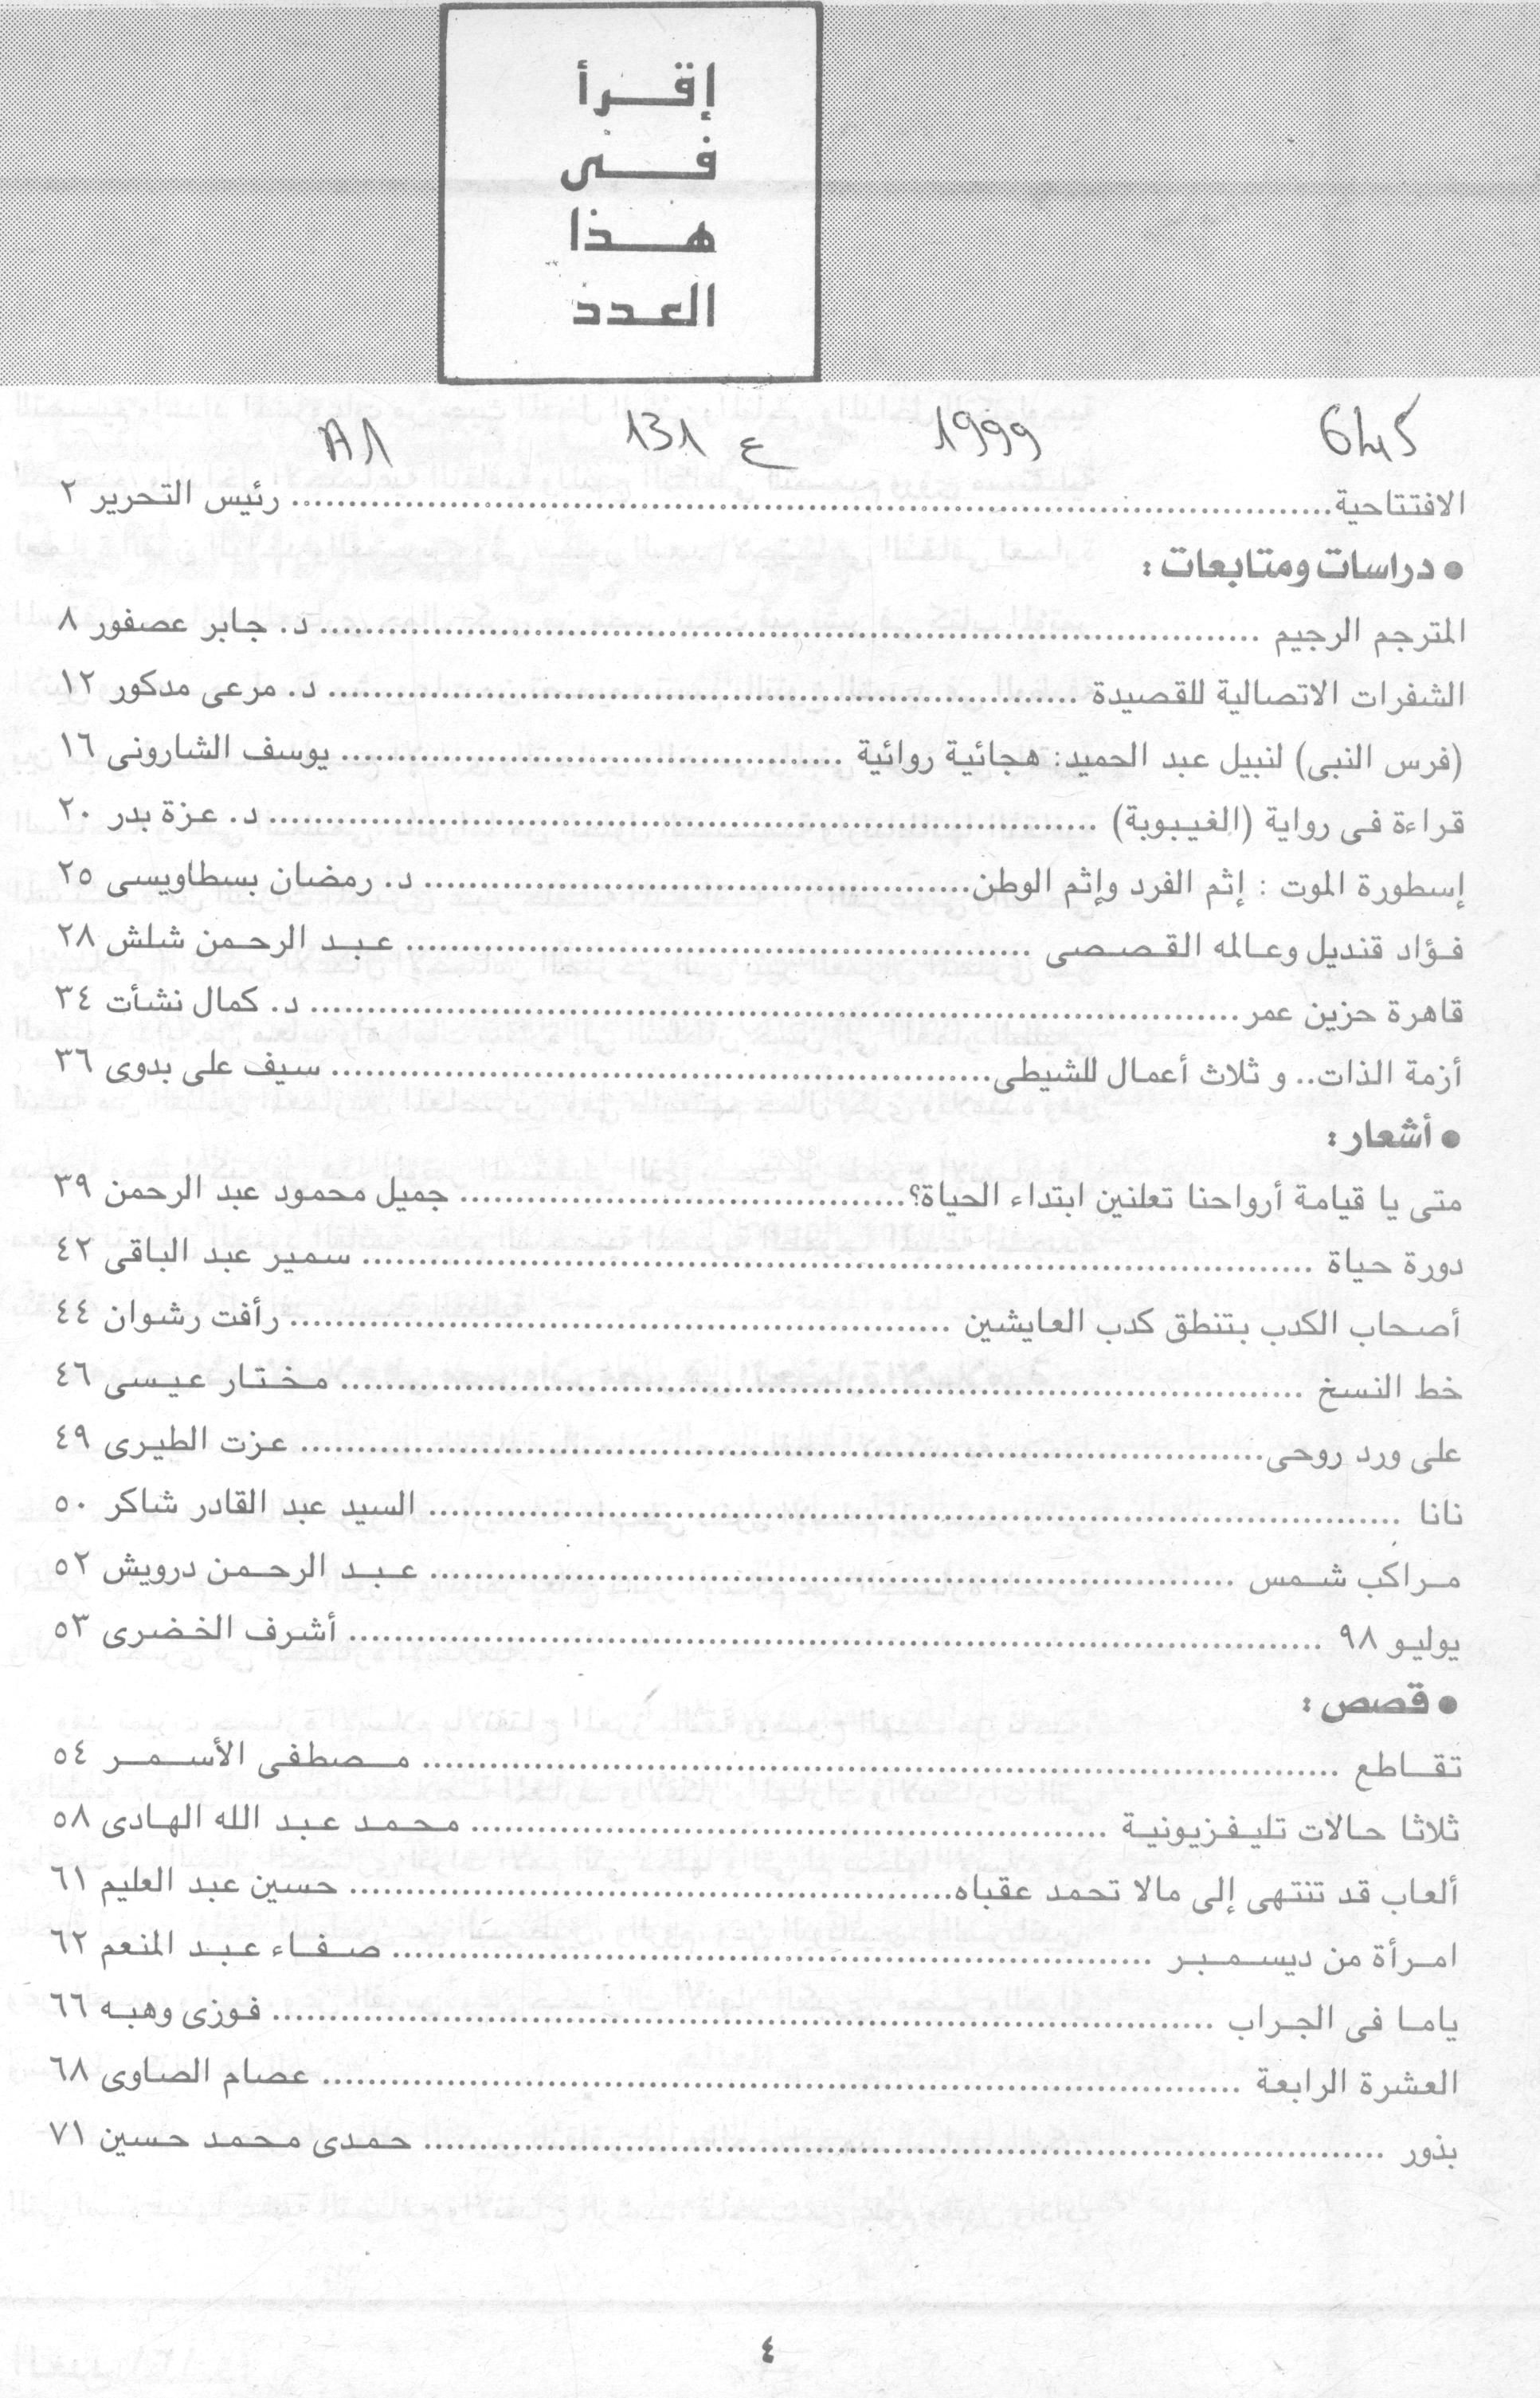 إقرأ
فى
هذا
العدد
645 1999 ع 131 A1
الافتتاحية .......... رئيس التحرير ٢
● دراسات ومتابعات :
المترجم الرجيم .......... د. جابر عصفور ٨
الشفرات الاتصالية للقصيدة .......... د. مرعى مدكور ١٢
(فرس النبى) لنبيل عبد الحميد: هجائية روائية .......... يوسف الشارونى ١٦
قراءة فى رواية (الغيبوبة) .......... د. عزة بدر ٢٠
إسطورة الموت : إثم الفرد وإثم الوطن .......... د. رمضان بسطاويسى ٢٥
فؤاد قنديل وعالمه القصصى .......... عبد الرحمن شلش ٢٨
قاهرة حزين عمر .......... د. كمال نشأت ٣٤
أزمة الذات.. و ثلاث أعمال للشيطى .......... سيف على بدوى ٣٦
● أشعار :
متى يا قيامة أرواحنا تعلنين ابتداء الحياة؟ .......... جميل محمود عبد الرحمن ٣٩
دورة حياة .......... سمير عبد الباقى ٤٢
أصحاب الكدب بتنطق كدب العايشين .......... رأفت رشوان ٤٤
خط النسخ .......... مختار عيسى ٤٦
على ورد روحى .......... عزت الطيرى ٤٩
نانا .......... السيد عبد القادر شاكر ٥٠
مراكب شمس .......... عبد الرحمن درويش ٥٢
يوليو ٩٨ .......... أشرف الخضرى ٥٣
● قصص :
تقاطع .......... مصطفى الأسمر ٥٤
ثلاثا حالات تليفزيونية .......... محمد عبد الله الهادى ٥٨
ألعاب قد تنتهى إلى مالا تحمد عقباه .......... حسين عبد العليم ٦١
امرأة من ديسمبر .......... صفاء عبد المنعم ٦٢
ياما فى الجراب .......... فوزى وهبه ٦٦
العشرة الرابعة .......... عصام الصاوى ٦٨
بذور .......... حمدى محمد حسين ٧١
٤